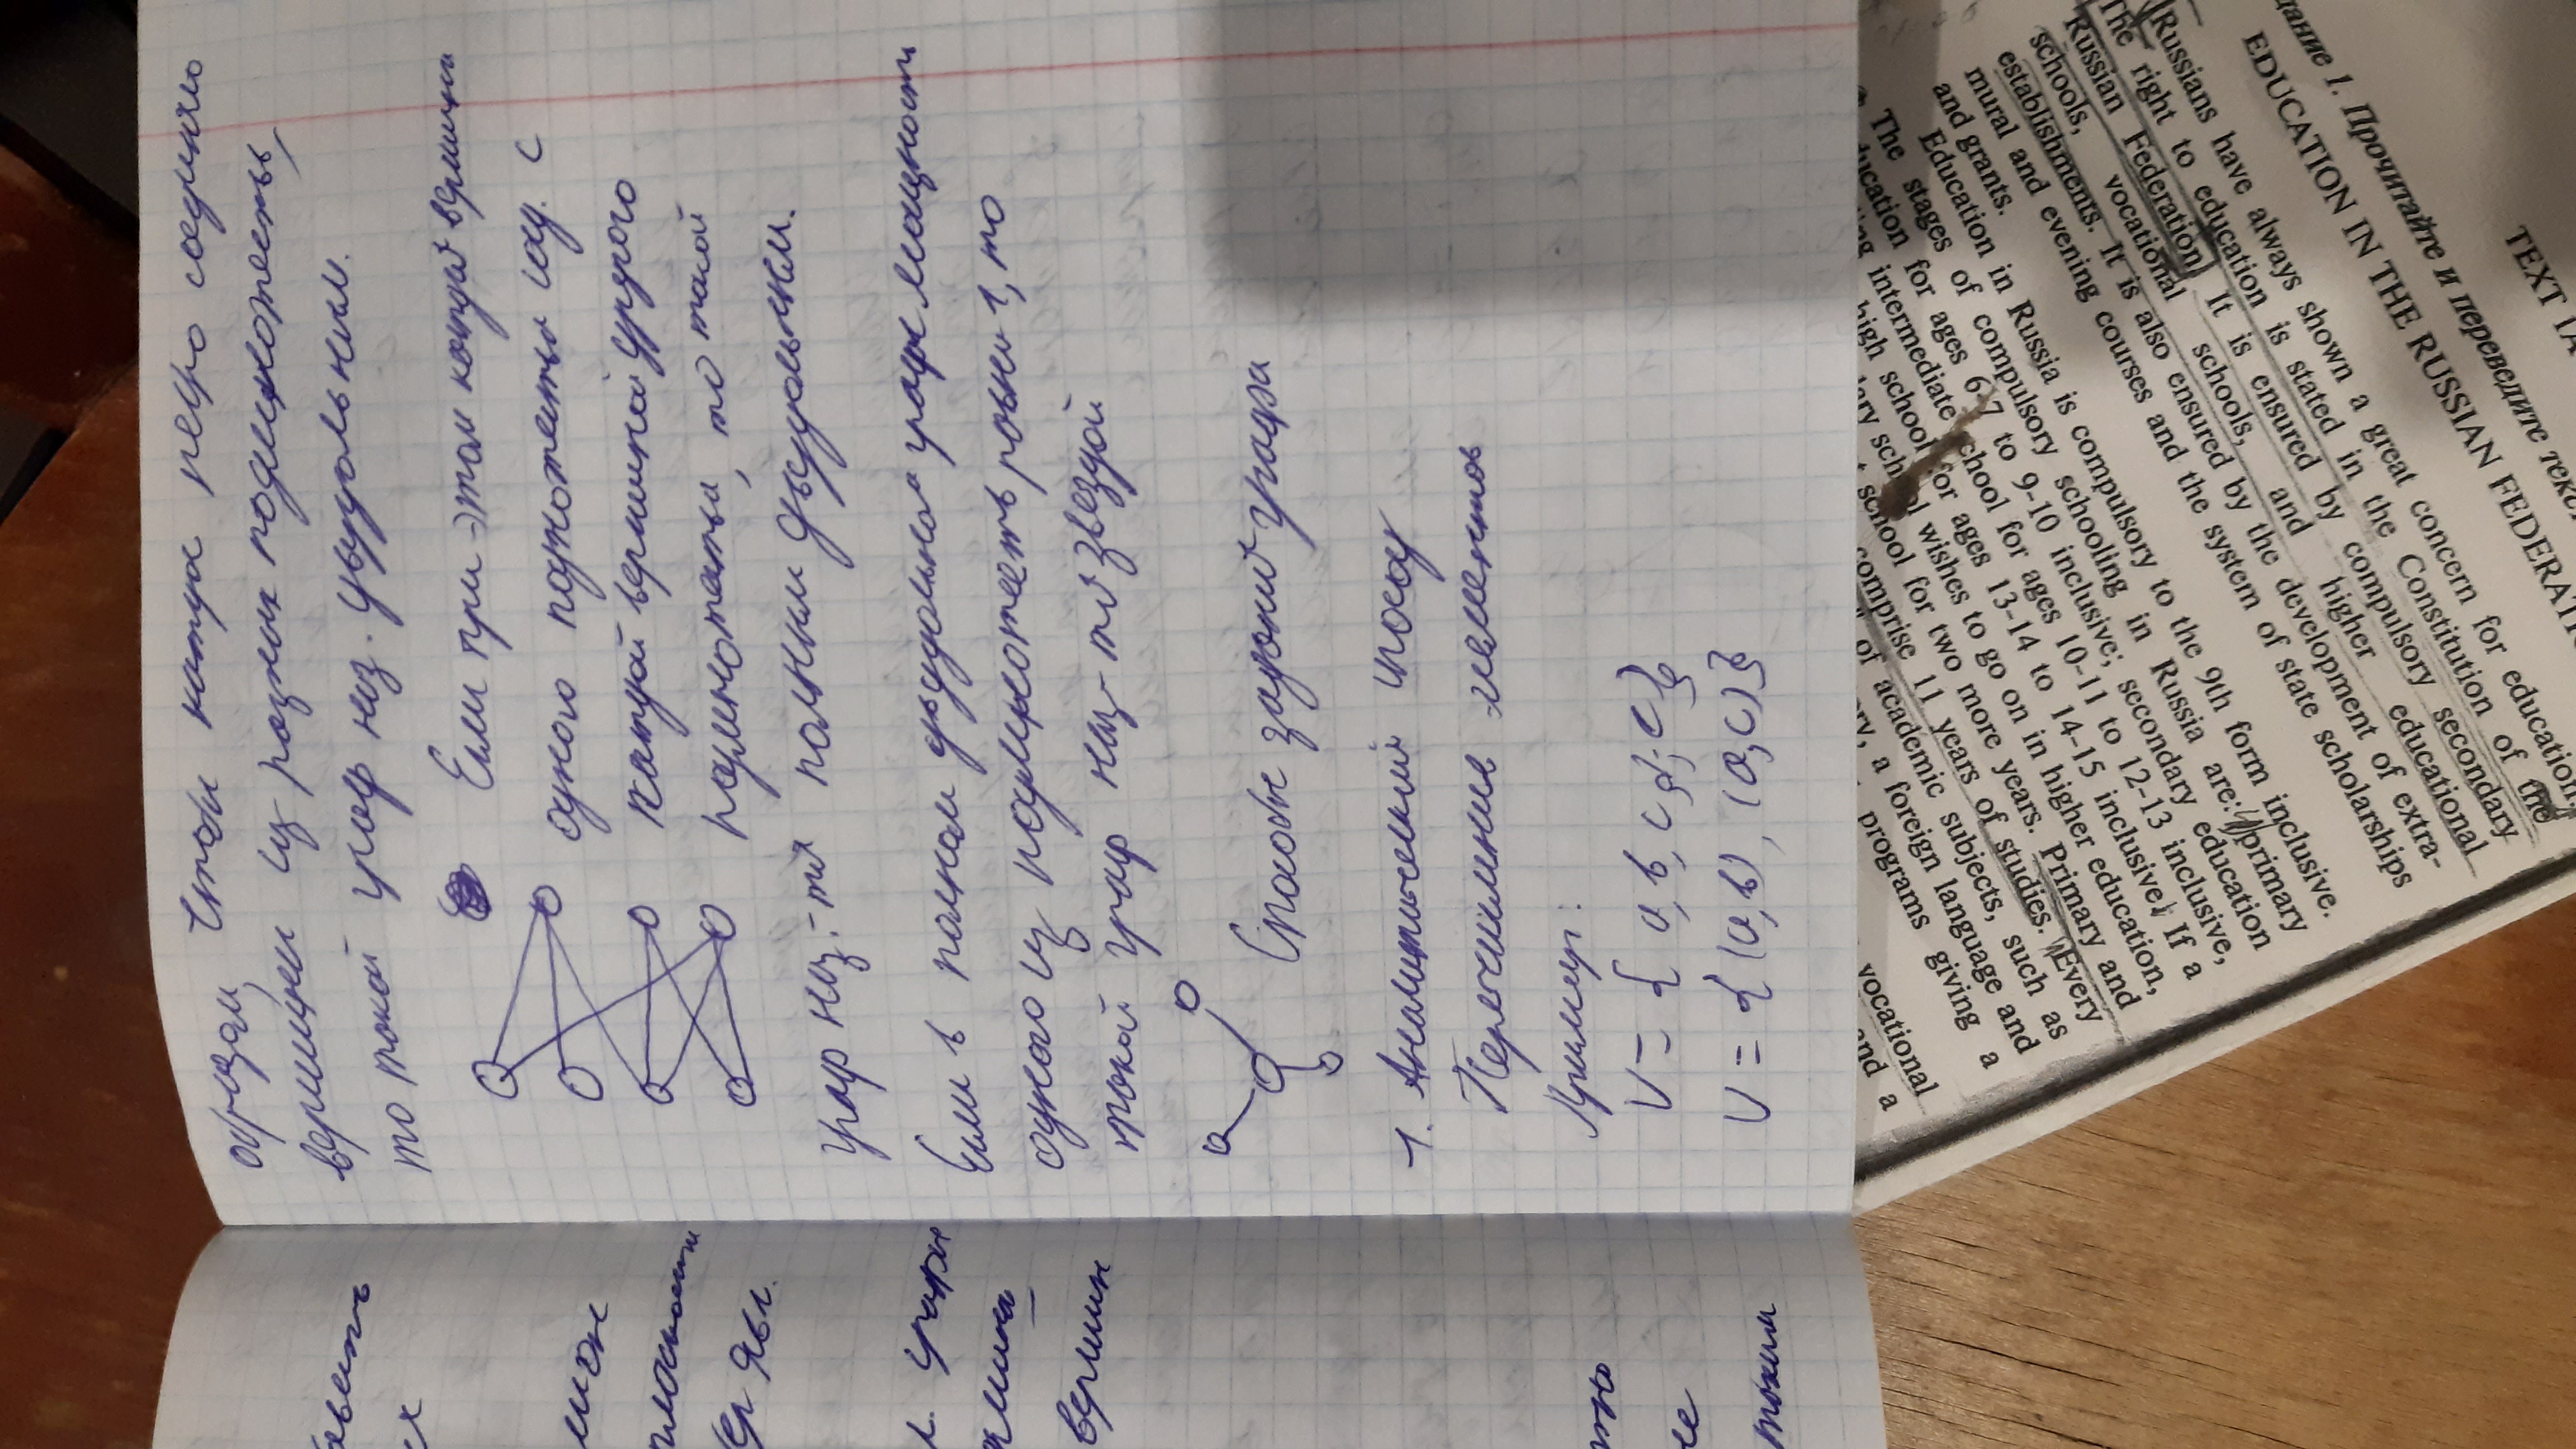 образом, чтобы каждое ребро соединяло
вершины из разных подмножеств,
то такой граф наз. двудольным.
Если при этом каждая вершина
одного подножества соед. с
каждой вершиной другого
подмножества, то такой
граф наз.-тся полным двудольным.
Если в полном двудольном графе мощность
одного из подмножеств равна 1, то
такой граф наз-тся звездой
Способы задания графа
1. Аналитический способ
Перечисление элементов
Пример:
V = { a, b, c, d, e }
U = {(a,b), (a,c)}
овить
их
плоскости
явл.
л. графы
вершин
таким
TEXT 1A
дание 1. Прочитайте и переведите
EDUCATION IN THE RUSSIAN FEDERATI
Russians have always shown a great concern for education.
The right to education is stated in the Constitution of the
Russian Federation. It is ensured by compulsory secondary
schools, vocational schools, and higher educational
establishments. It is also ensured by the development of extra-
mural and evening courses and the system of state scholarships
and grants.
Education in Russia is compulsory to the 9th form inclusive.
The stages of compulsory schooling in Russia are: primary
education for ages 6-7 to 9-10 inclusive; secondary education
intermediate school for ages 10-11 to 12-13 inclusive,
high school for ages 13-14 to 14-15 inclusive. If a
wishes to go on in higher education,
school for two more years. Primary and
comprise 11 years of studies. Every
of academic subjects, such as
a foreign language and
programs giving a
vocational
and a